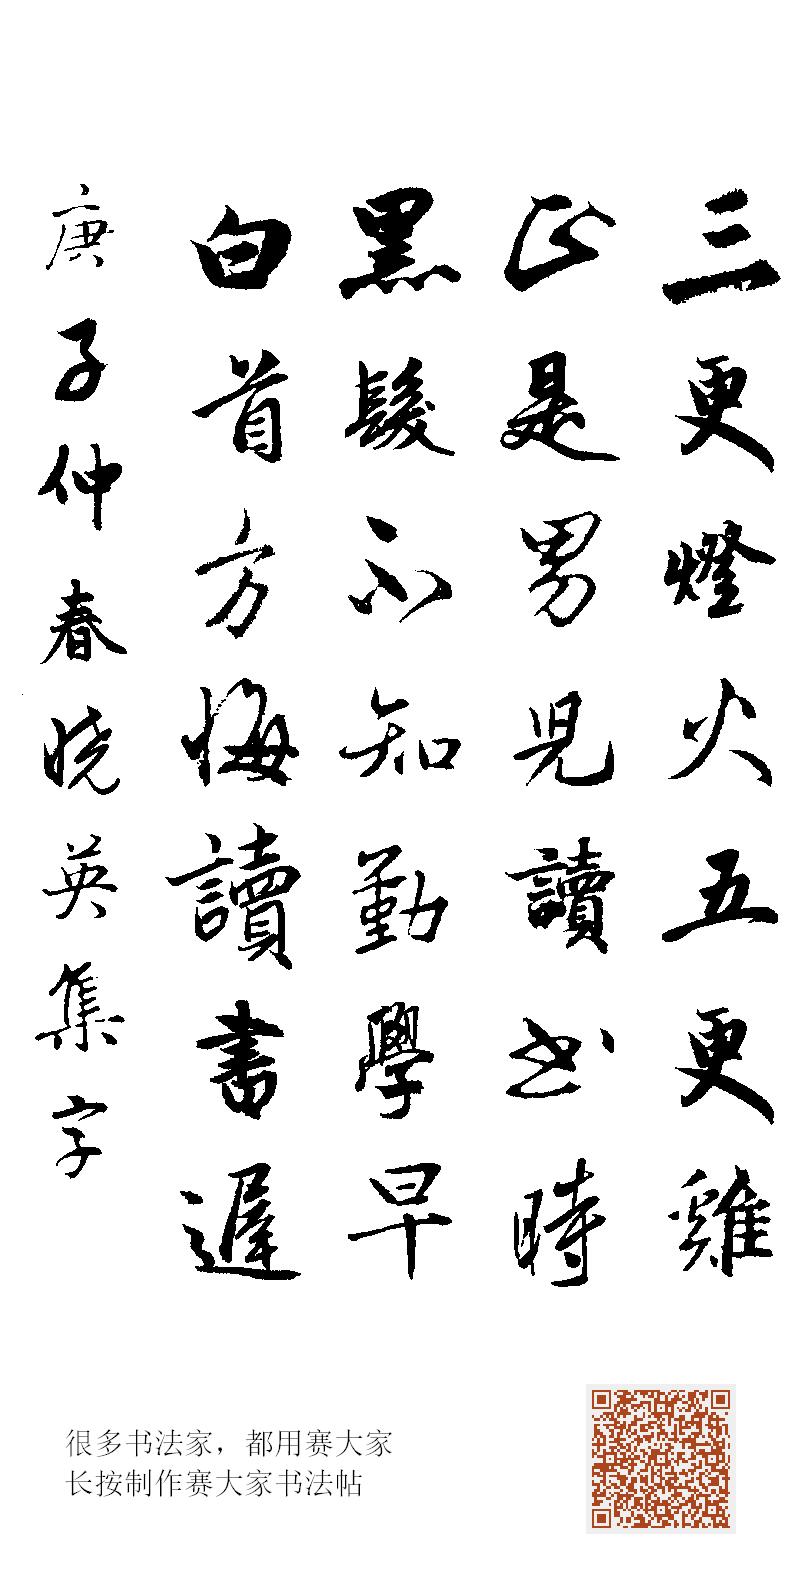 三更燈火五更雞
正是男兒讀书時
黑髮不知勤學早
白首方悔讀書遲
庚子仲春晓英集字
很多书法家，都用赛大家
长按制作赛大家书法帖